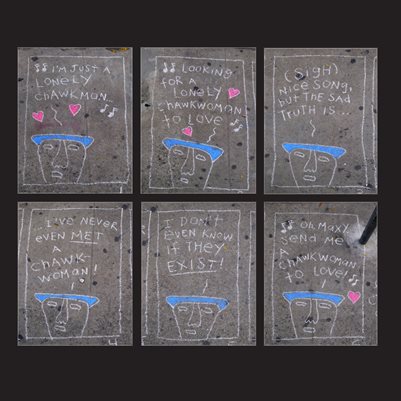 I'M JUST A
LONELY
CHAWKMAN...
LOOKING
FOR A
LONELY
CHAWKWOMAN
TO LOVE
(SIGH)
NICE SONG,
BUT THE SAD
TRUTH IS...
I'VE NEVER
EVEN MET
A
CHAWK-
WOMAN!
I DON'T
EVEN KNOW
IF THEY
EXIST!
OH MAXY
SEND ME
A
CHAWKWOMAN
TO LOVE!